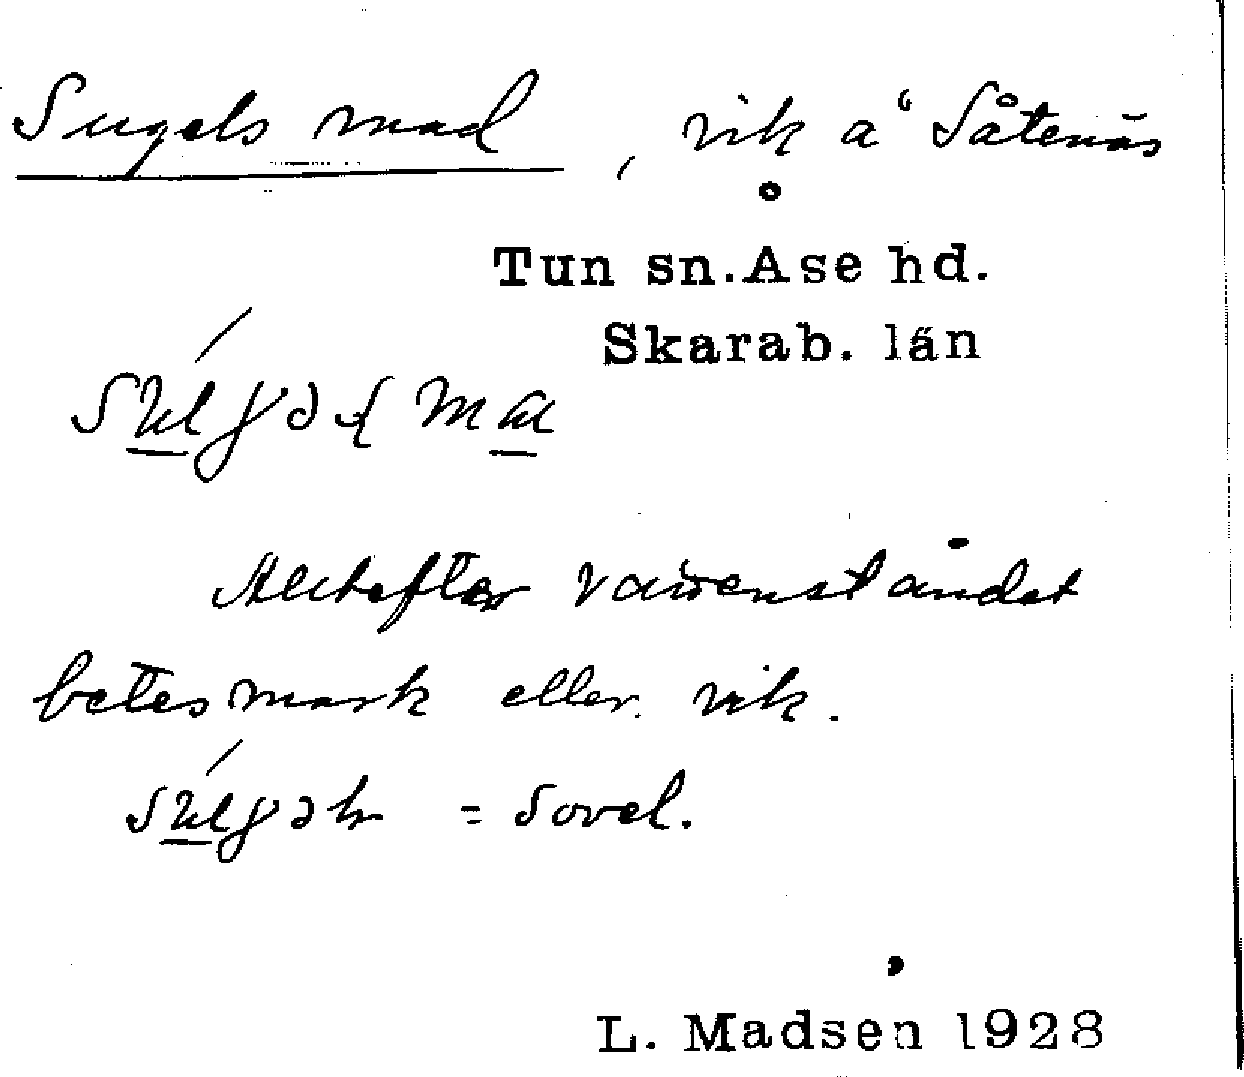 Sugels mad, vik å Såtenäs
Tun sn. Åse hd.
Skarab. län
Alltefter vattenståndet
betesmark eller vik.
= sovel.
L. Madsen 1928